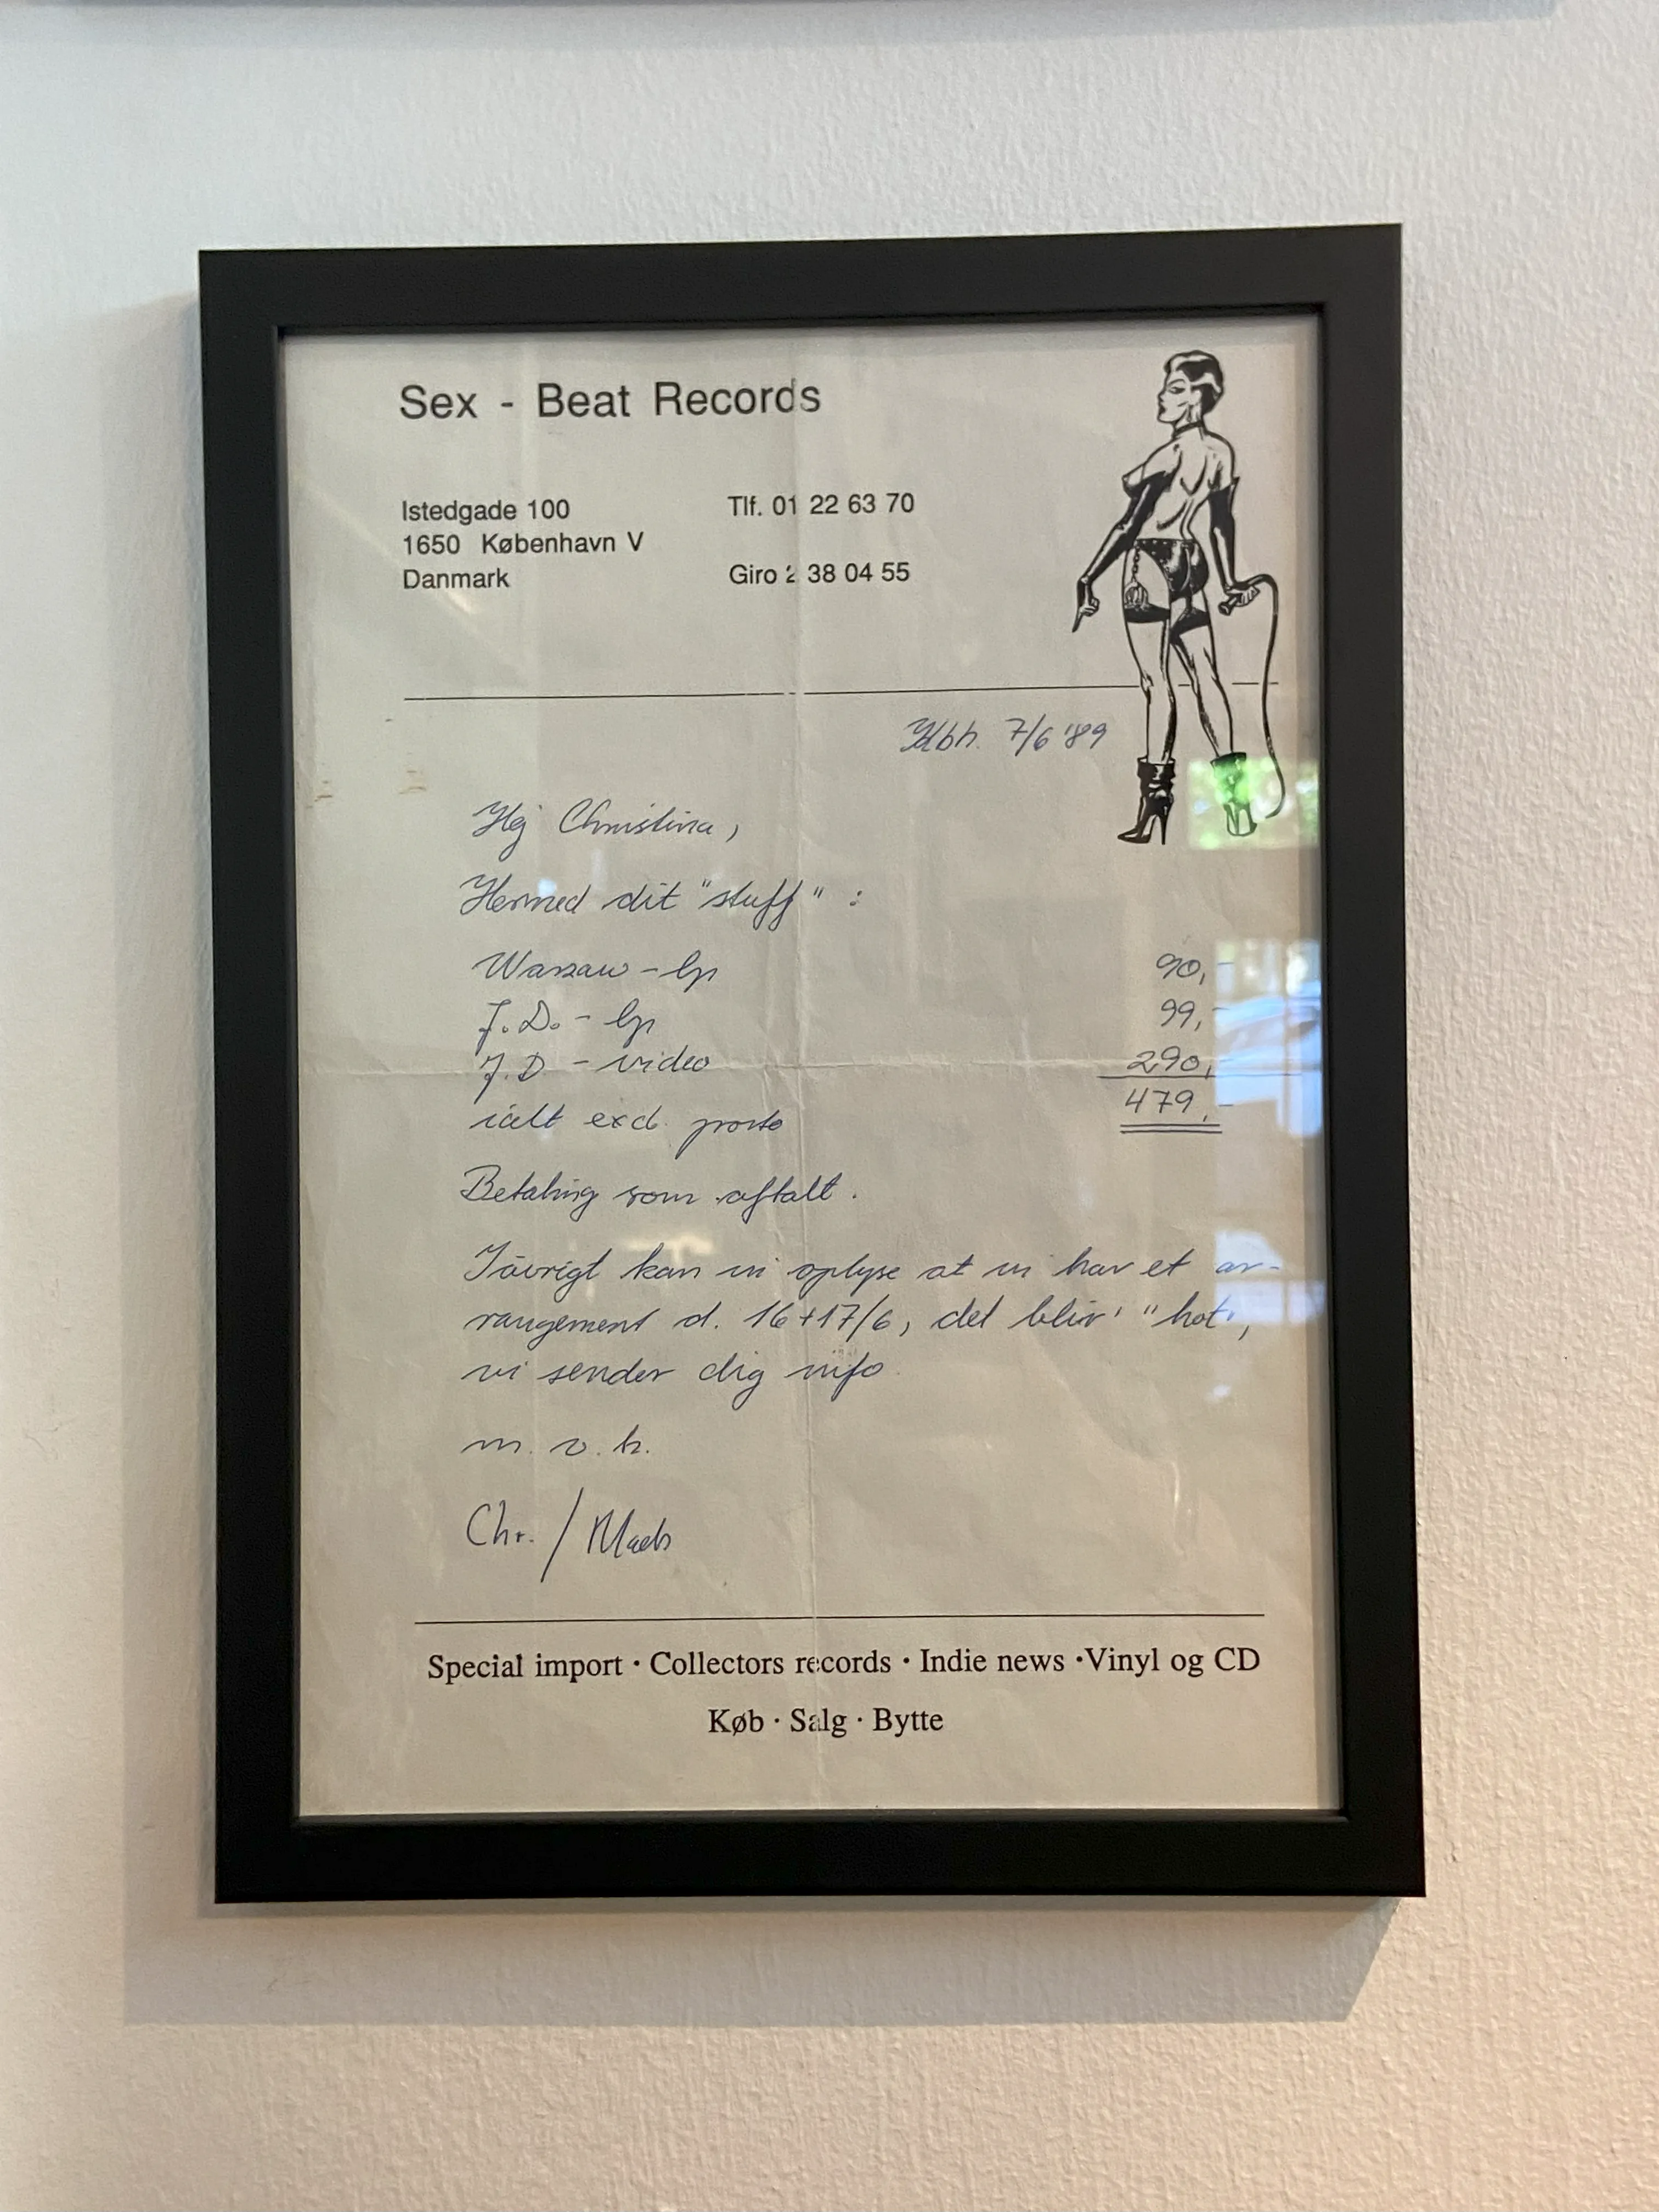 Sex - Beat Records
Istedgade 100
Tlf. 01 22 63 70
1650 København V
Danmark
Giro 2 38 04 55
Kbh. 7/6 '89
Hej Christina,
Hermed dit "stuff" :
Warsaw - lp 90,-
J.D. - lp 99,-
J.D. - video 290,-
ialt excl. porto 479,-
Betaling som aftalt.
Iøvrigt kan vi oplyse at vi har et ar-
rangement d. 16+17/6, det bliv' "hot",
vi sender dig info
m. v. h.
Chr. / Mads
Special import · Collectors records · Indie news · Vinyl og CD
Køb · Salg · Bytte